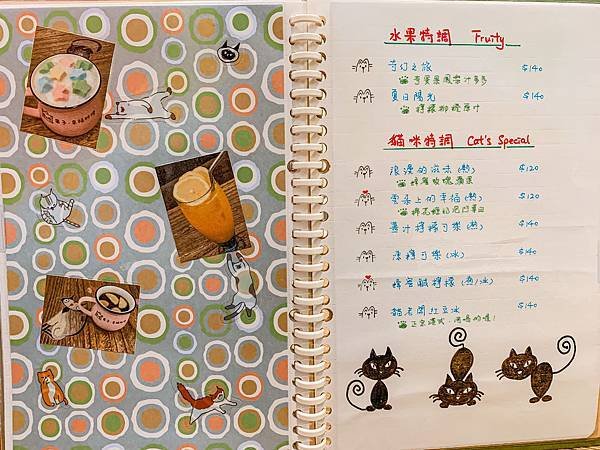 水果特調 Fruity
奇幻之旅 $140
奇異果鳳梨汁多多
夏日陽光 $140
檸檬柳橙原汁
貓咪特調 Cat's Special
浪漫的滋味(熱) $120
蜂蜜玫瑰蘋果
雲朵上的幸福(熱) $120
棉花糖
薑汁檸檬可樂(熱) $140
凍檸可樂(冰) $140
蜂蜜鹹檸檬(熱/冰) $140
貓老闆紅豆冰 $140
正宗港式